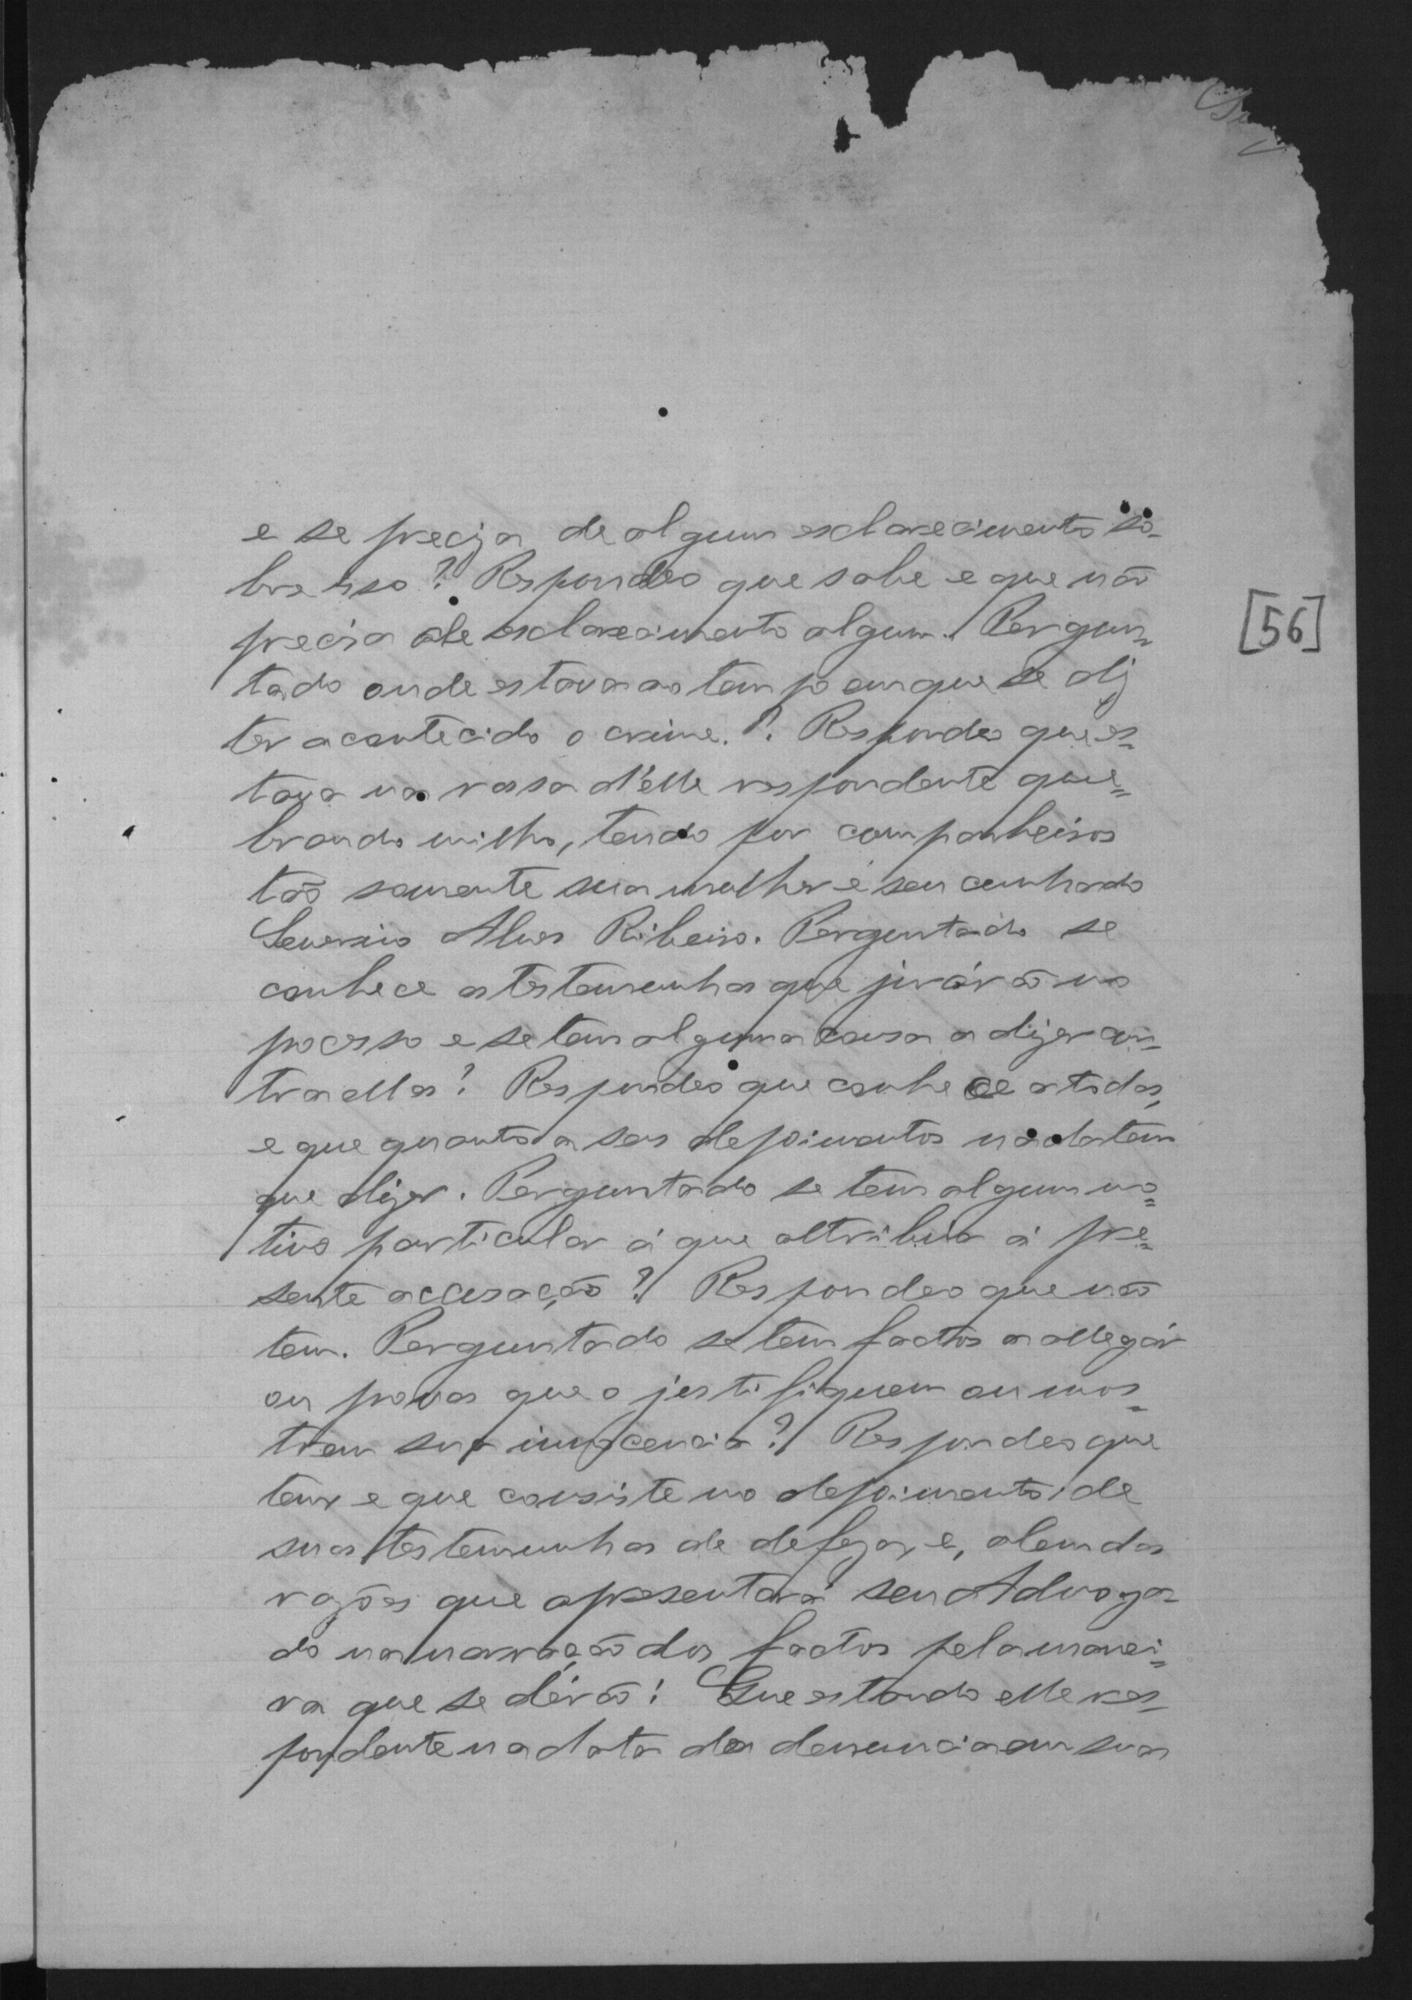 e se preciza de algum esclarecimento so-
bre isso? Respondeo que sabe e que não
precisa de esclarecimento algum. Pergun=
tado onde estava ao tempo em que se diz
ter acontecido o crime.? Respondeo que es=
tava na casa d'elle respondente que=
brando milho, tendo por companheiros
tão somente sua mulher e seu cunhado
Severino Alves Ribeiro. Perguntado se
conhece as testemunhas que jurárão no
pocesso e se tem alguma cousa a dizer con=
tra ellas? Respondeo que conhece a todas,
e que quanto a seos depoimentos nada tem
que dizer. Perguntado se tem algum mo=
tivo particular á que attribua á pre=
sente accusação? Respondeo que não
tem. Perguntado se tem factos a allegár
ou provas que o justifiquem ou mos=
trem sua innocencia? Respondeo que
tem e que consiste no depoimento de
suas testemunhas de defeza, e, alem das
razões que apresentará seu Advoga
do na narração dos factos pela manei=
ra que se dérão: Que estando elle res=
pondente na data da denuncia em sua
[56]